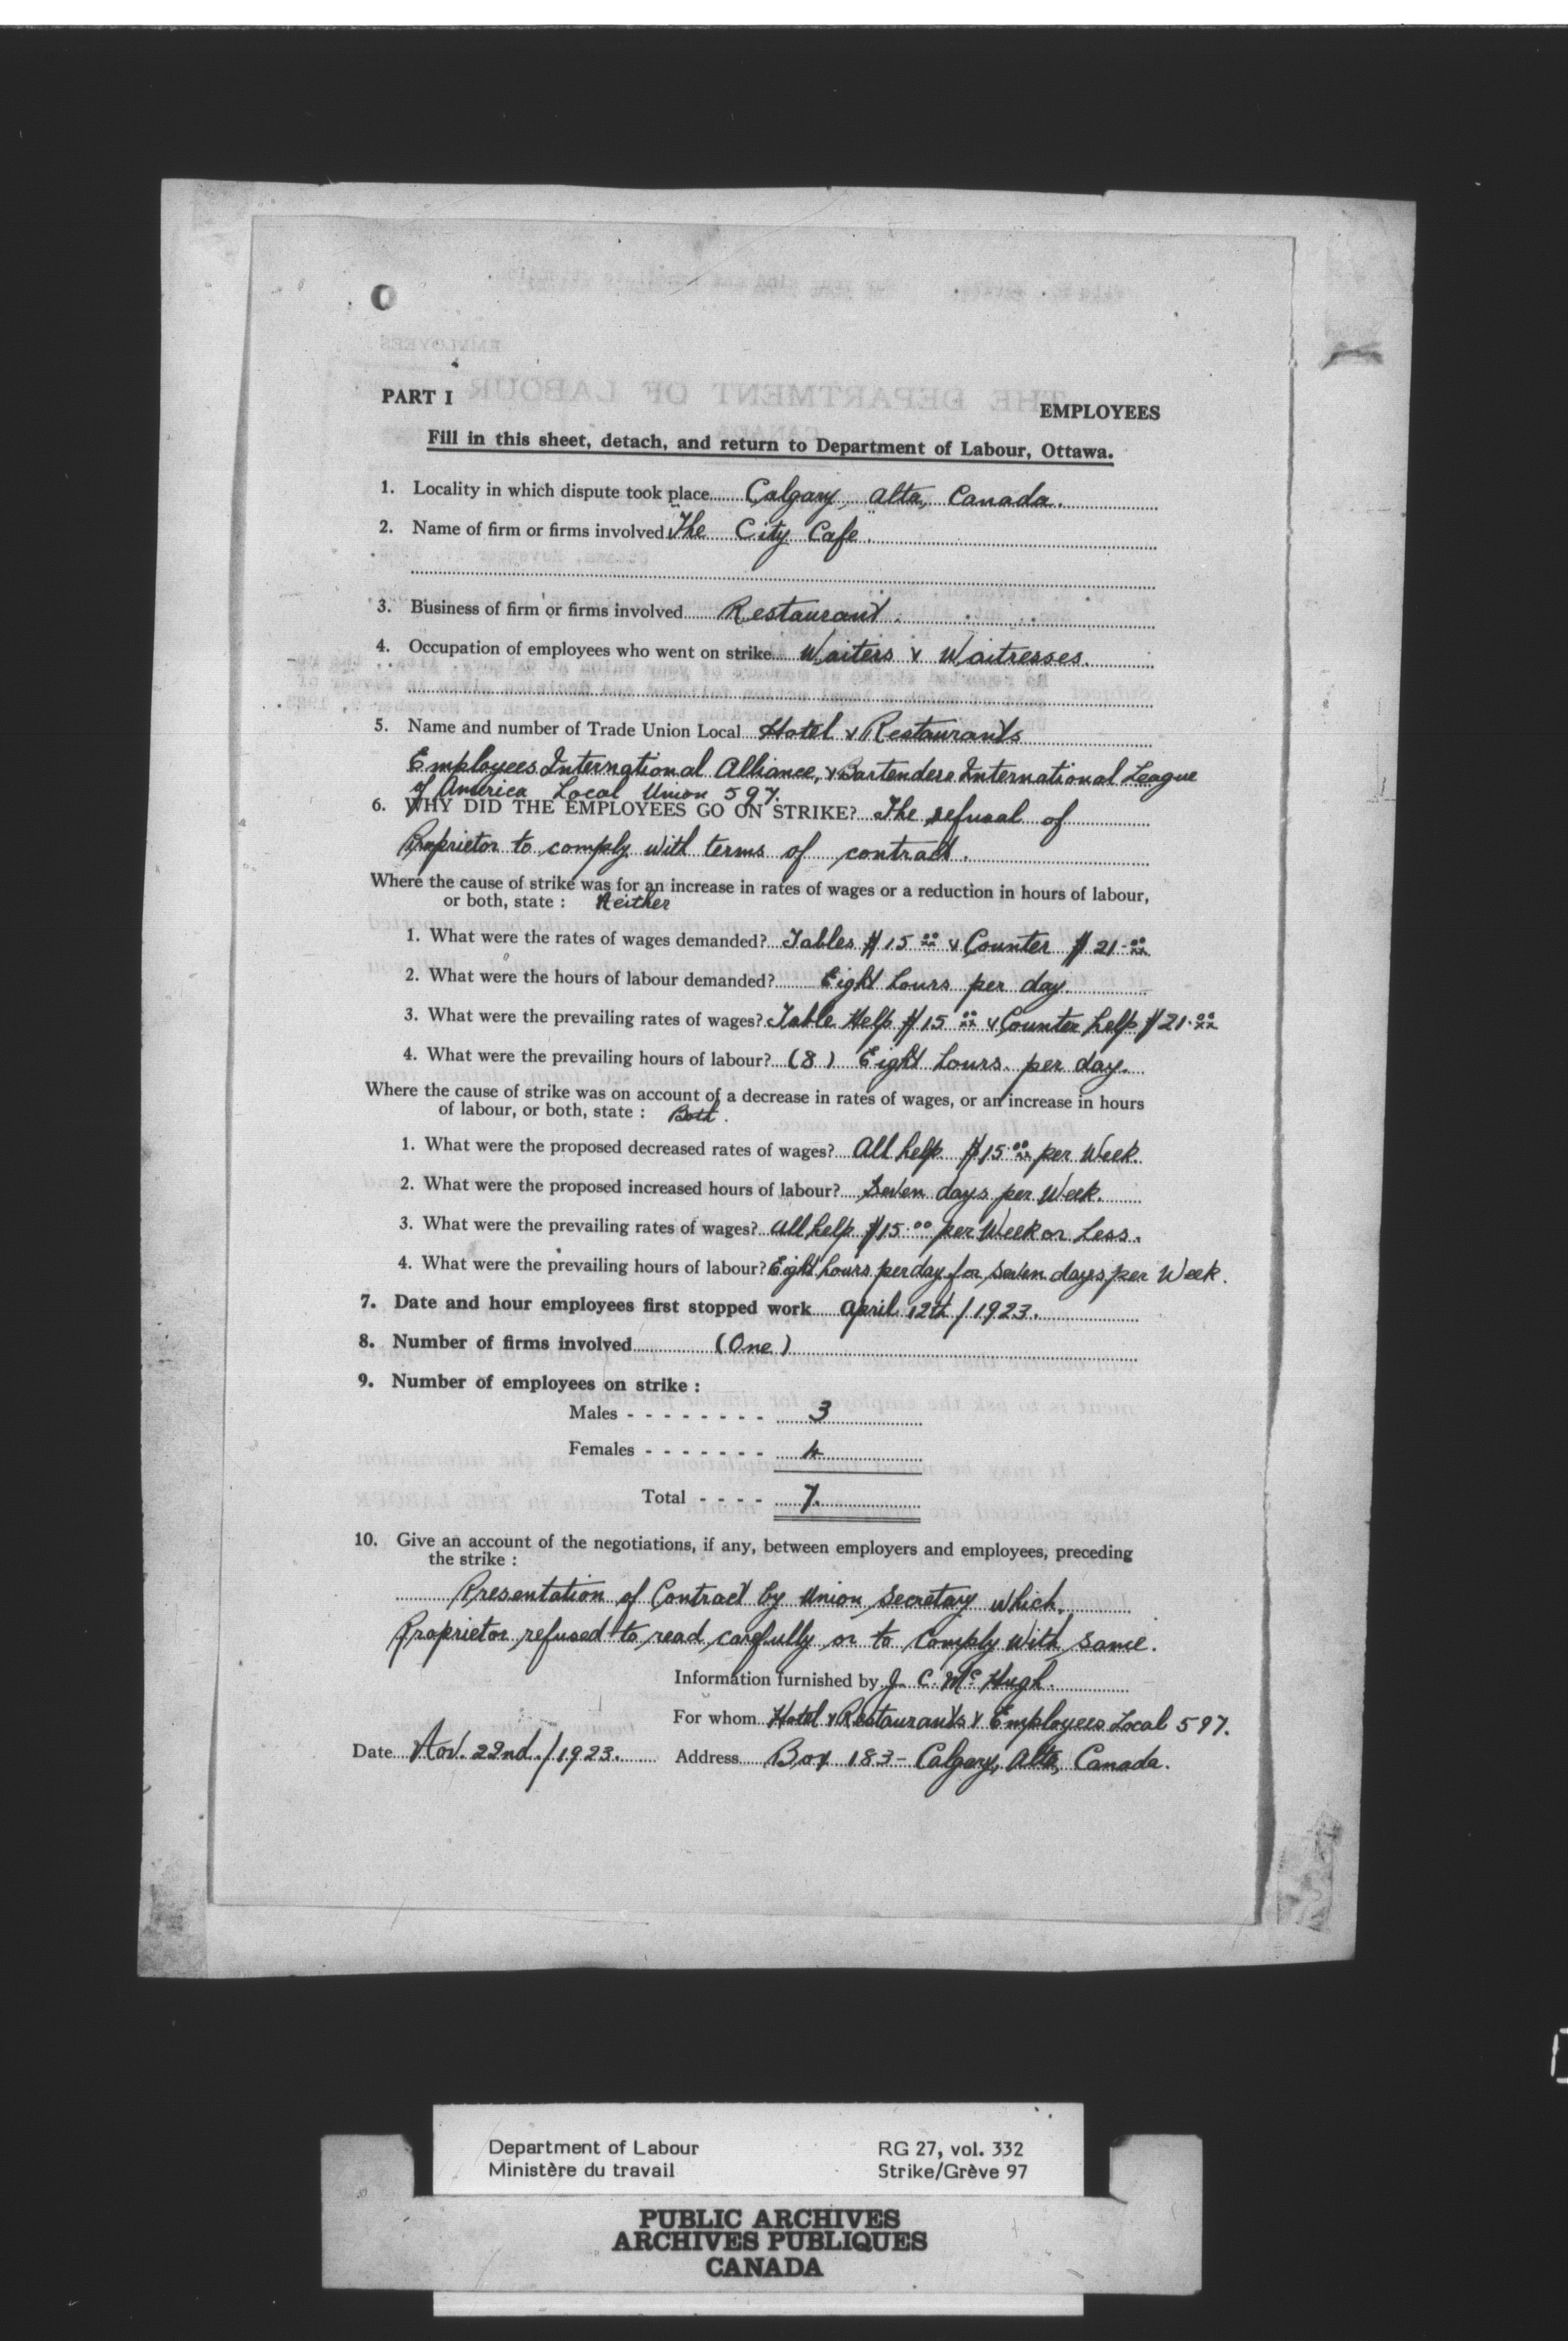 O
PART I
EMPLOYEES
Fill in this sheet, detach, and return to Department of Labour, Ottawa.
1. Locality in which dispute took place Calgary, Alta, Canada.
2. Name of firm or firms involved The City Cafe.
3. Business of firm or firms involved Restaurant.
4. Occupation of employees who went on strike Waiters & Waitresses.
5. Name and number of Trade Union Local Hotel & Restaurants
Employees International Alliance, & Bartenders International League
of America Local Union 597.
6. WHY DID THE EMPLOYEES GO ON STRIKE? The refusal of
Proprietor to comply with terms of contract.
Where the cause of strike was for an increase in rates of wages or a reduction in hours of labour,
or both, state : Neither
1. What were the rates of wages demanded? Tables $15.00 & Counter $21.00
2. What were the hours of labour demanded? Eight hours per day.
3. What were the prevailing rates of wages? Table Help $15.00 & Counter help $21.00
4. What were the prevailing hours of labour? (8) Eight hours per day.
Where the cause of strike was on account of a decrease in rates of wages, or an increase in hours
of labour, or both, state : Both.
1. What were the proposed decreased rates of wages? All help $15.00 per Week.
2. What were the proposed increased hours of labour? Seven days per Week.
3. What were the prevailing rates of wages? All help $15.00 per Week or Less.
4. What were the prevailing hours of labour? Eight hours per day for Seven days per Week.
7. Date and hour employees first stopped work April 12th/1923.
8. Number of firms involved (One)
9. Number of employees on strike :
Males - - - - - - - - 3
Females - - - - - - - 4
Total - - - - 7.
10. Give an account of the negotiations, if any, between employers and employees, preceding
the strike :
Presentation of Contract by Union Secretary which
Proprietor refused to read carefully or to Comply With Same.
Information furnished by J. C. McHugh.
For whom Hotel & Restaurants & Employees Local 597.
Date Nov. 22nd./1923. Address Box 183 - Calgary, Alta, Canada.
Department of Labour RG 27, vol. 332
Ministère du travail Strike/Grève 97
PUBLIC ARCHIVES
ARCHIVES PUBLIQUES
CANADA